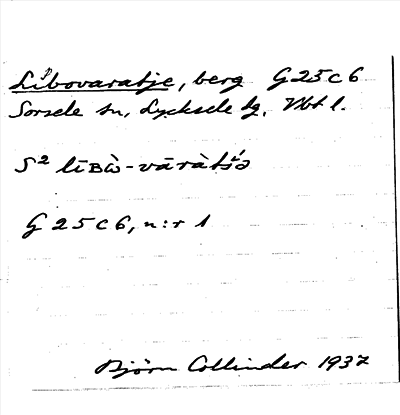 Libovaratje, berg G 25 c 6
Sorsele sn, Lycksele lg. Vbt l.
S² līʙὼ-vāràt́śə
G 25 c 6, n:r 1
Björn Collinder 1937